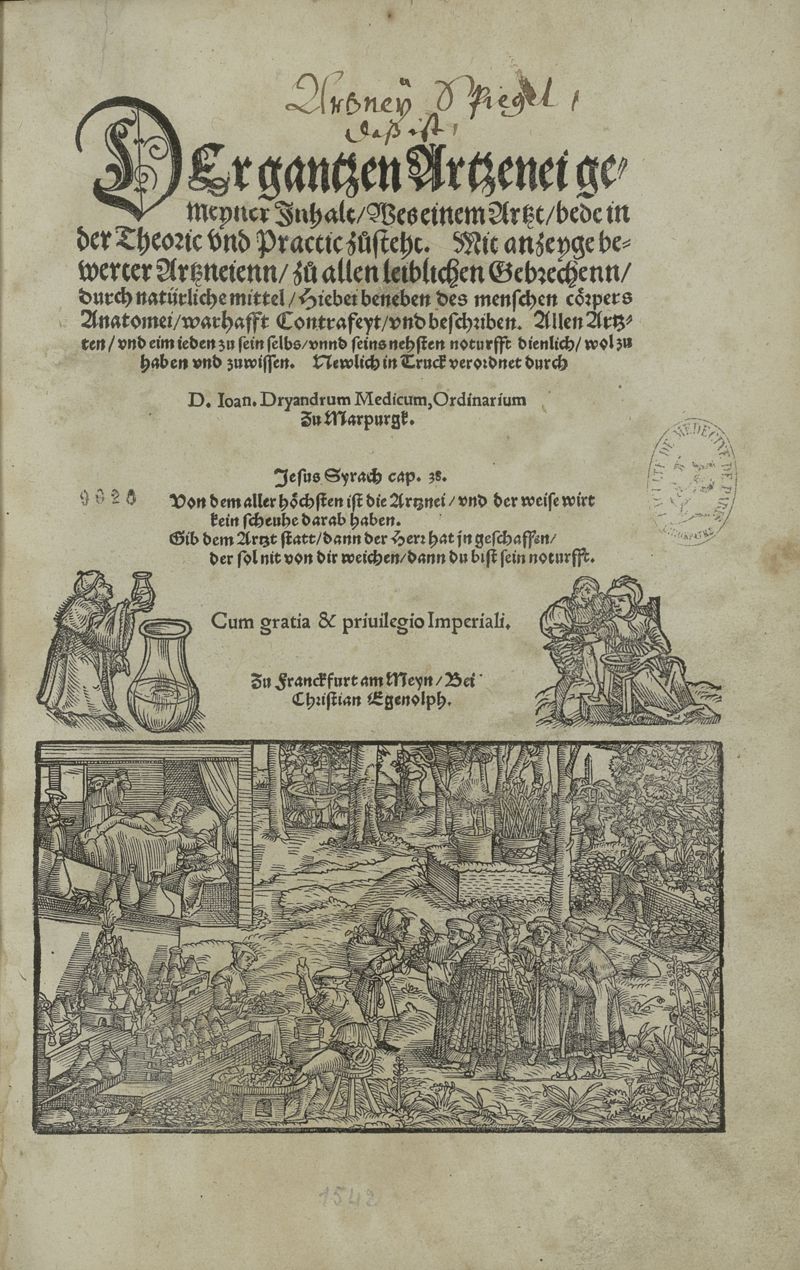 Artzney Spiegel /
das ist /
DEr gantzen Artzenei ge⸗
meyner Inhalt / Wes einem Artzt / bede in
der Theoric vnd Practic zůsteht. Mit anzeyge be⸗
werter Artzneienn / zů allen leiblichen Gebrechenn /
durch natürliche mittel / Hiebei beneben des menschen cörpers
Anatomei / warhafft Contrafeyt / vnd beschriben. Allen Artz⸗
ten / vnd eim ieden zu sein selbs / vnnd seins nehsten noturfft dienlich / wol zu
haben vnd zuwissen. Newlich in Truck verordnet durch
D. Ioan. Dryandrum Medicum, Ordinarium
Zu Marpurgk.
Jesus Syrach cap. 38.
9820
Von dem aller höchsten ist die Artznei / vnd der weise wirt
kein scheuhe darab haben.
Gib dem Artzt statt / dann der Herr hat jn geschaffen /
der sol nit von dir weichen / dann du bist sein noturfft.
Cum gratia & priuilegio Imperiali.
Zu Franckfurt am Meyn / Bei
Christian Egenolph.
1542